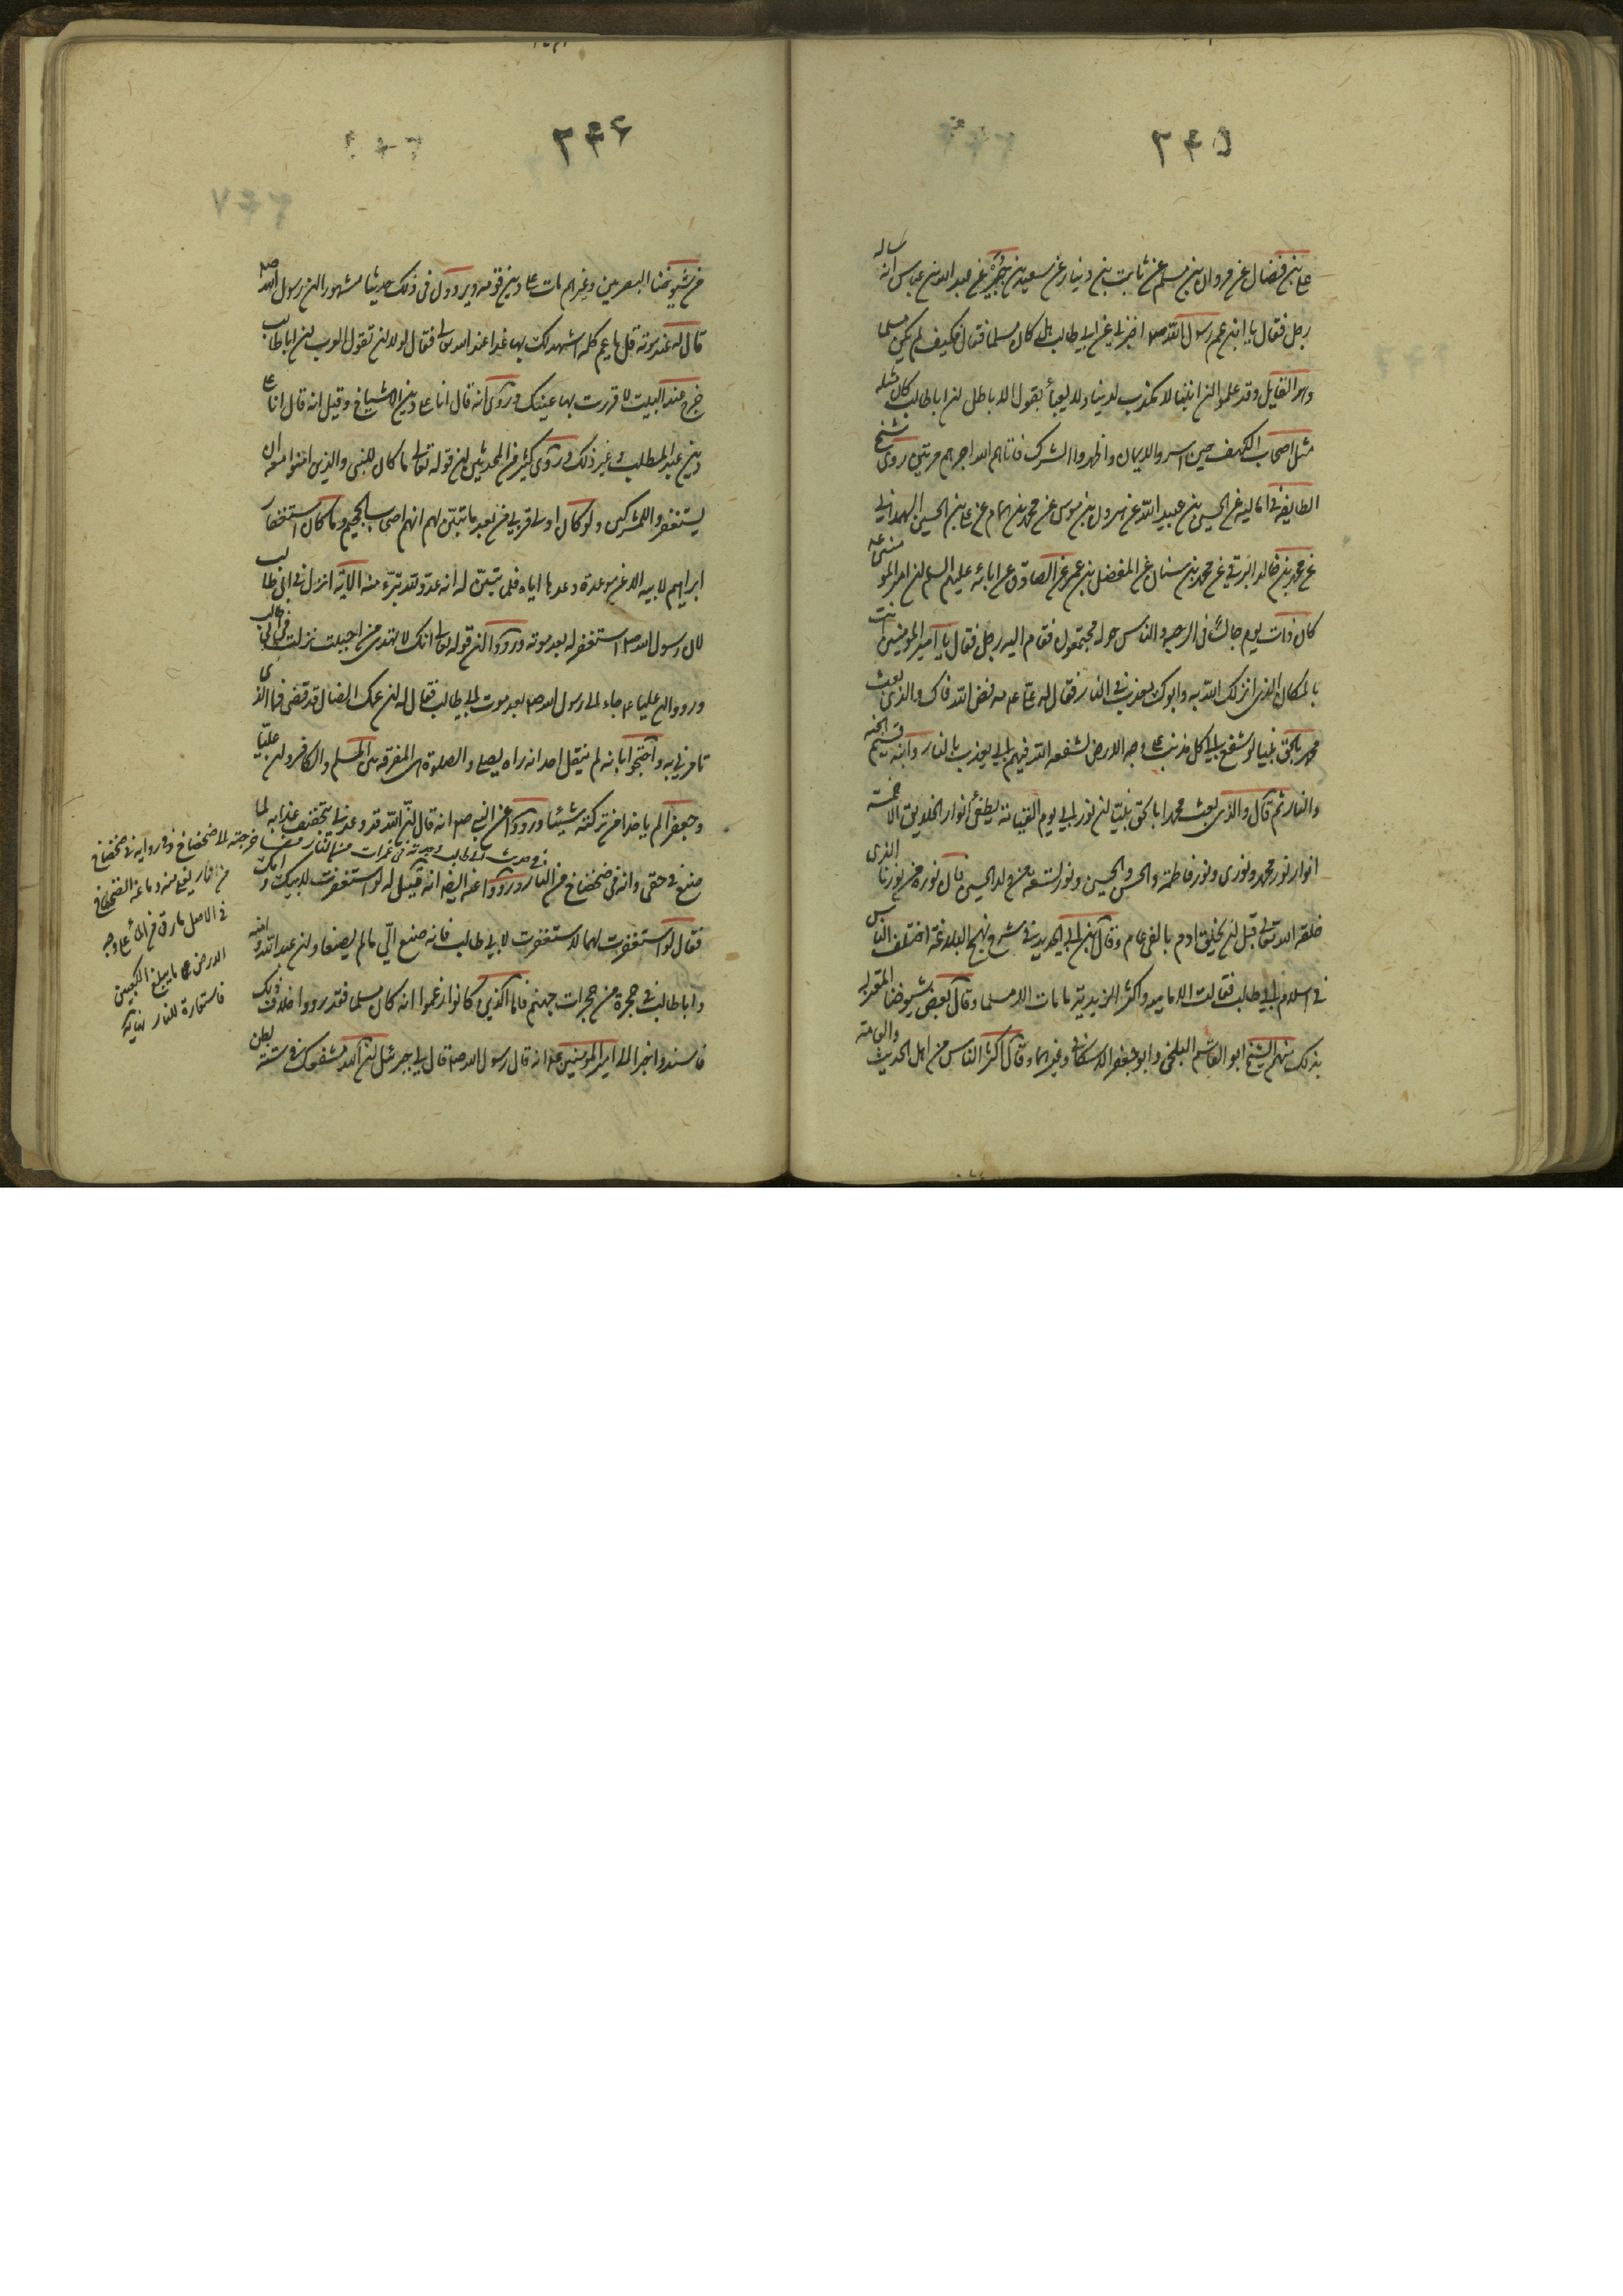 ٢٦٥
علي بن فضال عن مروان بن مسلم عن ثابت بن دينار عن سعيد بن جبير عن عبد الله بن عباس انه ساله
رجل فقال يا ابن عم رسول الله ص اخبرني عن ابي طالب هل كان مسلما فقال فكيف لم يكن مسلما
وهو القايل وقد علموا ان ابننا لا مكذب لدينا ولا يعبأ بقول الاباطل ان ابا طالب كان مثله
مثل اصحاب الكهف حين اسروا الايمان واظهروا الشرك فاتاهم الله اجرهم مرتين روى شيخ
الطايفة في اماليه عن الحسين بن عبيد الله عن هرون بن موسى عن محمد بن همام عن علي بن الحسين الهمداني
عن محمد بن خالد البرقي عن محمد بن سنان عن المفضل بن عمر عن الصادق عن ابائه عليهم السلم ان امير المؤمنين ع
كان ذات يوم جالسا في الرحبه والناس حوله مجتمعون فقام اليه رجل فقال يا امير المؤمنين انت
بالمكان الذي انزلك الله به وابوك يعذب في النار فقال له علي ع مه فض الله فاك والذي بعث
محمدا بالحق نبيا لو شفع ابي في كل مذنب على وجه الارض لشفعه الله فيهم ابي يعذب بالنار وابنه قسيم الجنة
والنار ثم قال والذي بعث محمدا بالحق نبيا ان نور ابي يوم القيامة يطفئ انوار الخلايق الا خمسة
انوار نور محمد ونوري ونور فاطمة والحسن والحسين ونور تسعة من ولد الحسين فان نوره من نورنا الذي
خلقه الله تعالى قبل ان يخلق ادم بالفي عام وقال ابن ابي الحديد في شرح نهج البلاغة اختلف الناس
في اسلام ابي طالب فقالت الامامية واكثر الزيدية ما مات الا مسلما وقال بعض شيوخنا المعتزلة
بذلك منهم الشيخ ابو القاسم البلخي وابو جعفر الاسكافي وغيرهما وقال اكثر الناس من اهل الحديث والعامة
٢٦٦
من شيوخنا البصريين وغيرهم مات على دين قومه ويروون في ذلك حديثا مشهورا ان رسول الله ص
قال له عند موته قل يا عم كلمة اشهد لك بها غدا عند الله تعالى فقال لولا ان تقول العرب ان ابا طالب
جزع عند الموت لاقررت بها عينك وروى انه قال انا على دين الاشياخ وقيل انه قال انا على
دين عبد المطلب وغير ذلك وروى كثير من المحدثين ان قوله تعالى ما كان للنبي والذين امنوا معه ان
يستغفروا للمشركين ولو كانوا اولي قربى من بعد ما تبين لهم انهم اصحاب الجحيم وما كان استغفار
ابراهيم لابيه الا عن موعدة وعدها اياه فلما تبين له انه عدو لله تبرء منه الاية انزل في ابي طالب
لان رسول الله ص استغفر له بعد موته ورووا ان قوله تعالى انك لا تهدي من احببت نزلت في ابي طالب
ورووا ان عليا ع جاء الى رسول الله ص بعد موت ابي طالب فقال له ان عمك الضال قد قضى فما الذي
تامرني به واحتجوا بانه لم ينقل احد انه راه يصلي والصلوة هي المفرقة بين المسلم والكافر وان عليا
وجعفرا لم ياخذا من تركته شيئا ورووا عن النبي ص انه قال ان الله قد وعدني بتخفيف عذابه لما
صنع في حقي وانه في ضحضاح من النار ورووا عنه ايضا انه قيل له لو استغفرت لابيك وامك
فقال لو استغفرت لهما لاستغفرت لابي طالب فانه صنع الي ما لم يصنعا وان عبد الله وامنه
وابا طالب في حجرة من حجرات جهنم فاما الذين كانوا زعموا انه كان مسلما فقد رووا خلاف ذلك
فاسندوا خبرا الى امير المؤمنين ع انه قال رسول الله ص قال لي جبرئيل ان الله مشفعك في ستة بطن
في حديث ابي طالب وجدته في غمرات من النار
فاخرجته الى ضحضاح وفي رواية في ضحضاح
من نار يغلي منه دماغه الضحضاح
في الاصل ما رق من الماء على وجه
الارض ما يبلغ الكعبين
فاستعاره للنار نهاية